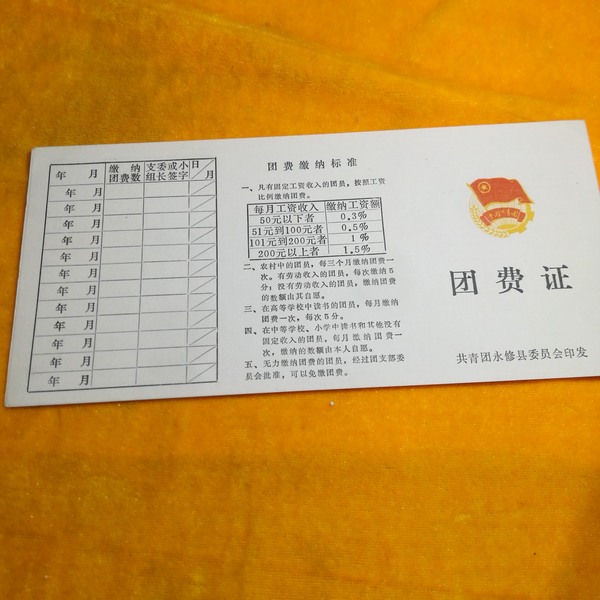 年 月 缴纳团费数 支委或小组长签字 日 月
年 月
年 月
年 月
年 月
年 月
年 月
年 月
年 月
年 月
年 月
年 月
年 月
团费缴纳标准
一、凡有固定工资收入的团员，按照工资
比例缴纳团费。
每月工资收入 缴纳工资额
50元以下者 0.3%
51元到100元者 0.5%
101元到200元者 1%
200元以上者 1.5%
二、农村中的团员，每三个月缴纳团费一
次；有劳动收入的团员，每次缴纳5
分；没有劳动收入的团员，缴纳团费
的数额由其自愿。
三、在高等学校中读书的团员，每月缴纳
团费一次，每次5分。
四、在中等学校、小学中读书和其他没有
固定收入的团员，每月缴纳团费一
次，缴纳的数额由本人自愿。
五、无力缴纳团费的团员，经过团支部委
员会批准，可以免缴团费。
中国共青团
团费证
共青团永修县委员会印发